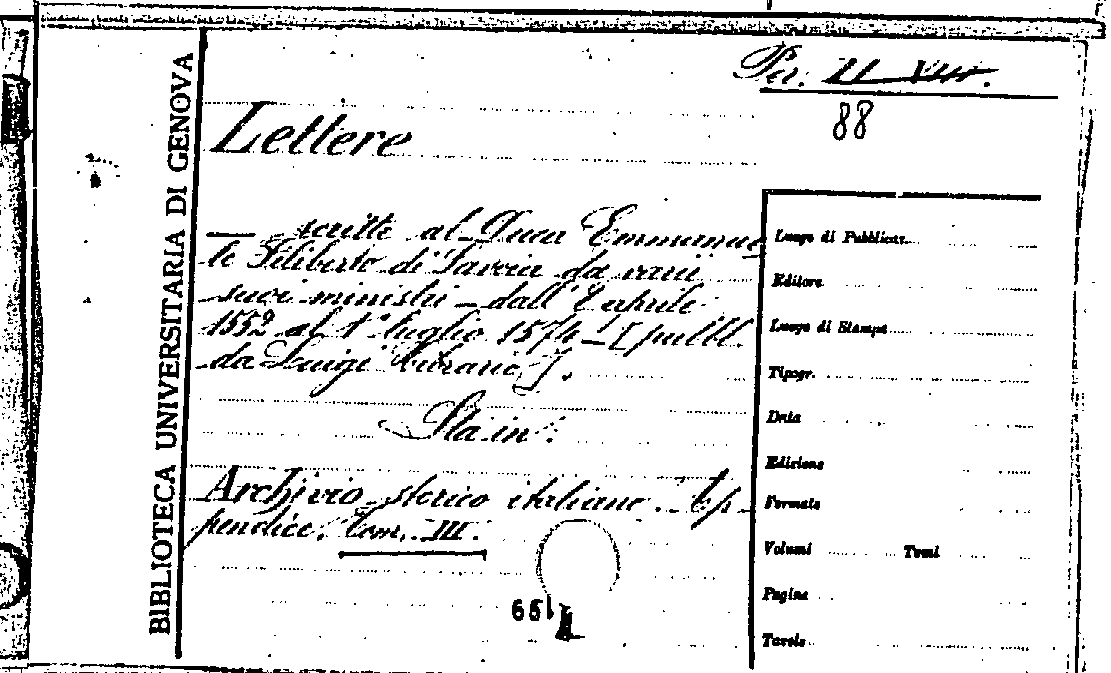 BIBLIOTECA UNIVERSITARIA DI GENOVA
Per. II VIII.
88
Lettere
— scritte al Duca Emmanue
le Filiberto di Savoia da varii
suoi ministri – dall' 8 aprile
1552 al 1° luglio 1574 – [pubbl.
da Luigi Cibrario].
Sta in:
Archivio storico italiano. Ap
pendice. Tom. III.
Luogo di Pubblicaz.
Editore
Luogo di Stampa
Tipogr.
Data
Edizione
Formato
Volumi Tomi
Pagine
Tavole